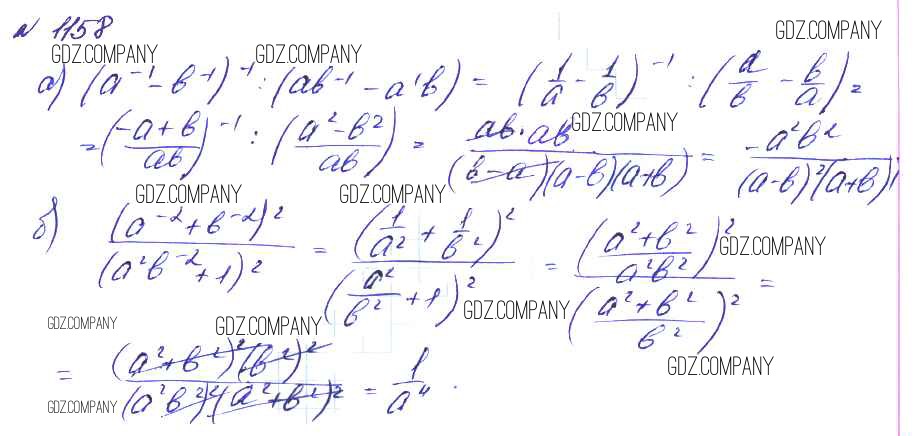 № 1158
GDZ.COMPANY GDZ.COMPANY GDZ.COMPANY
а) (a⁻¹ - b⁻¹)⁻¹ : (ab⁻¹ - a⁻¹b) = (1/a - 1/b)⁻¹ : (a/b - b/a) =
GDZ.COMPANY
= ((-a + b)/(ab))⁻¹ : ((a² - b²)/(ab)) = (ab · ab)/((b - a)(a - b)(a + b)) = (-a²b²)/((a - b)²(a + b))
GDZ.COMPANY GDZ.COMPANY
б) (a⁻² + b⁻²)²/(a²b⁻² + 1)² = (1/a² + 1/b²)²/(a²/b² + 1)² = ((a² + b²)/(a²b²))²/((a² + b²)/b²)² =
GDZ.COMPANY
GDZ.COMPANY GDZ.COMPANY GDZ.COMPANY
GDZ.COMPANY
= ((a² + b²)²(b²)²)/((a²b²)²(a² + b²)²) = 1/a⁴ .
GDZ.COMPANY